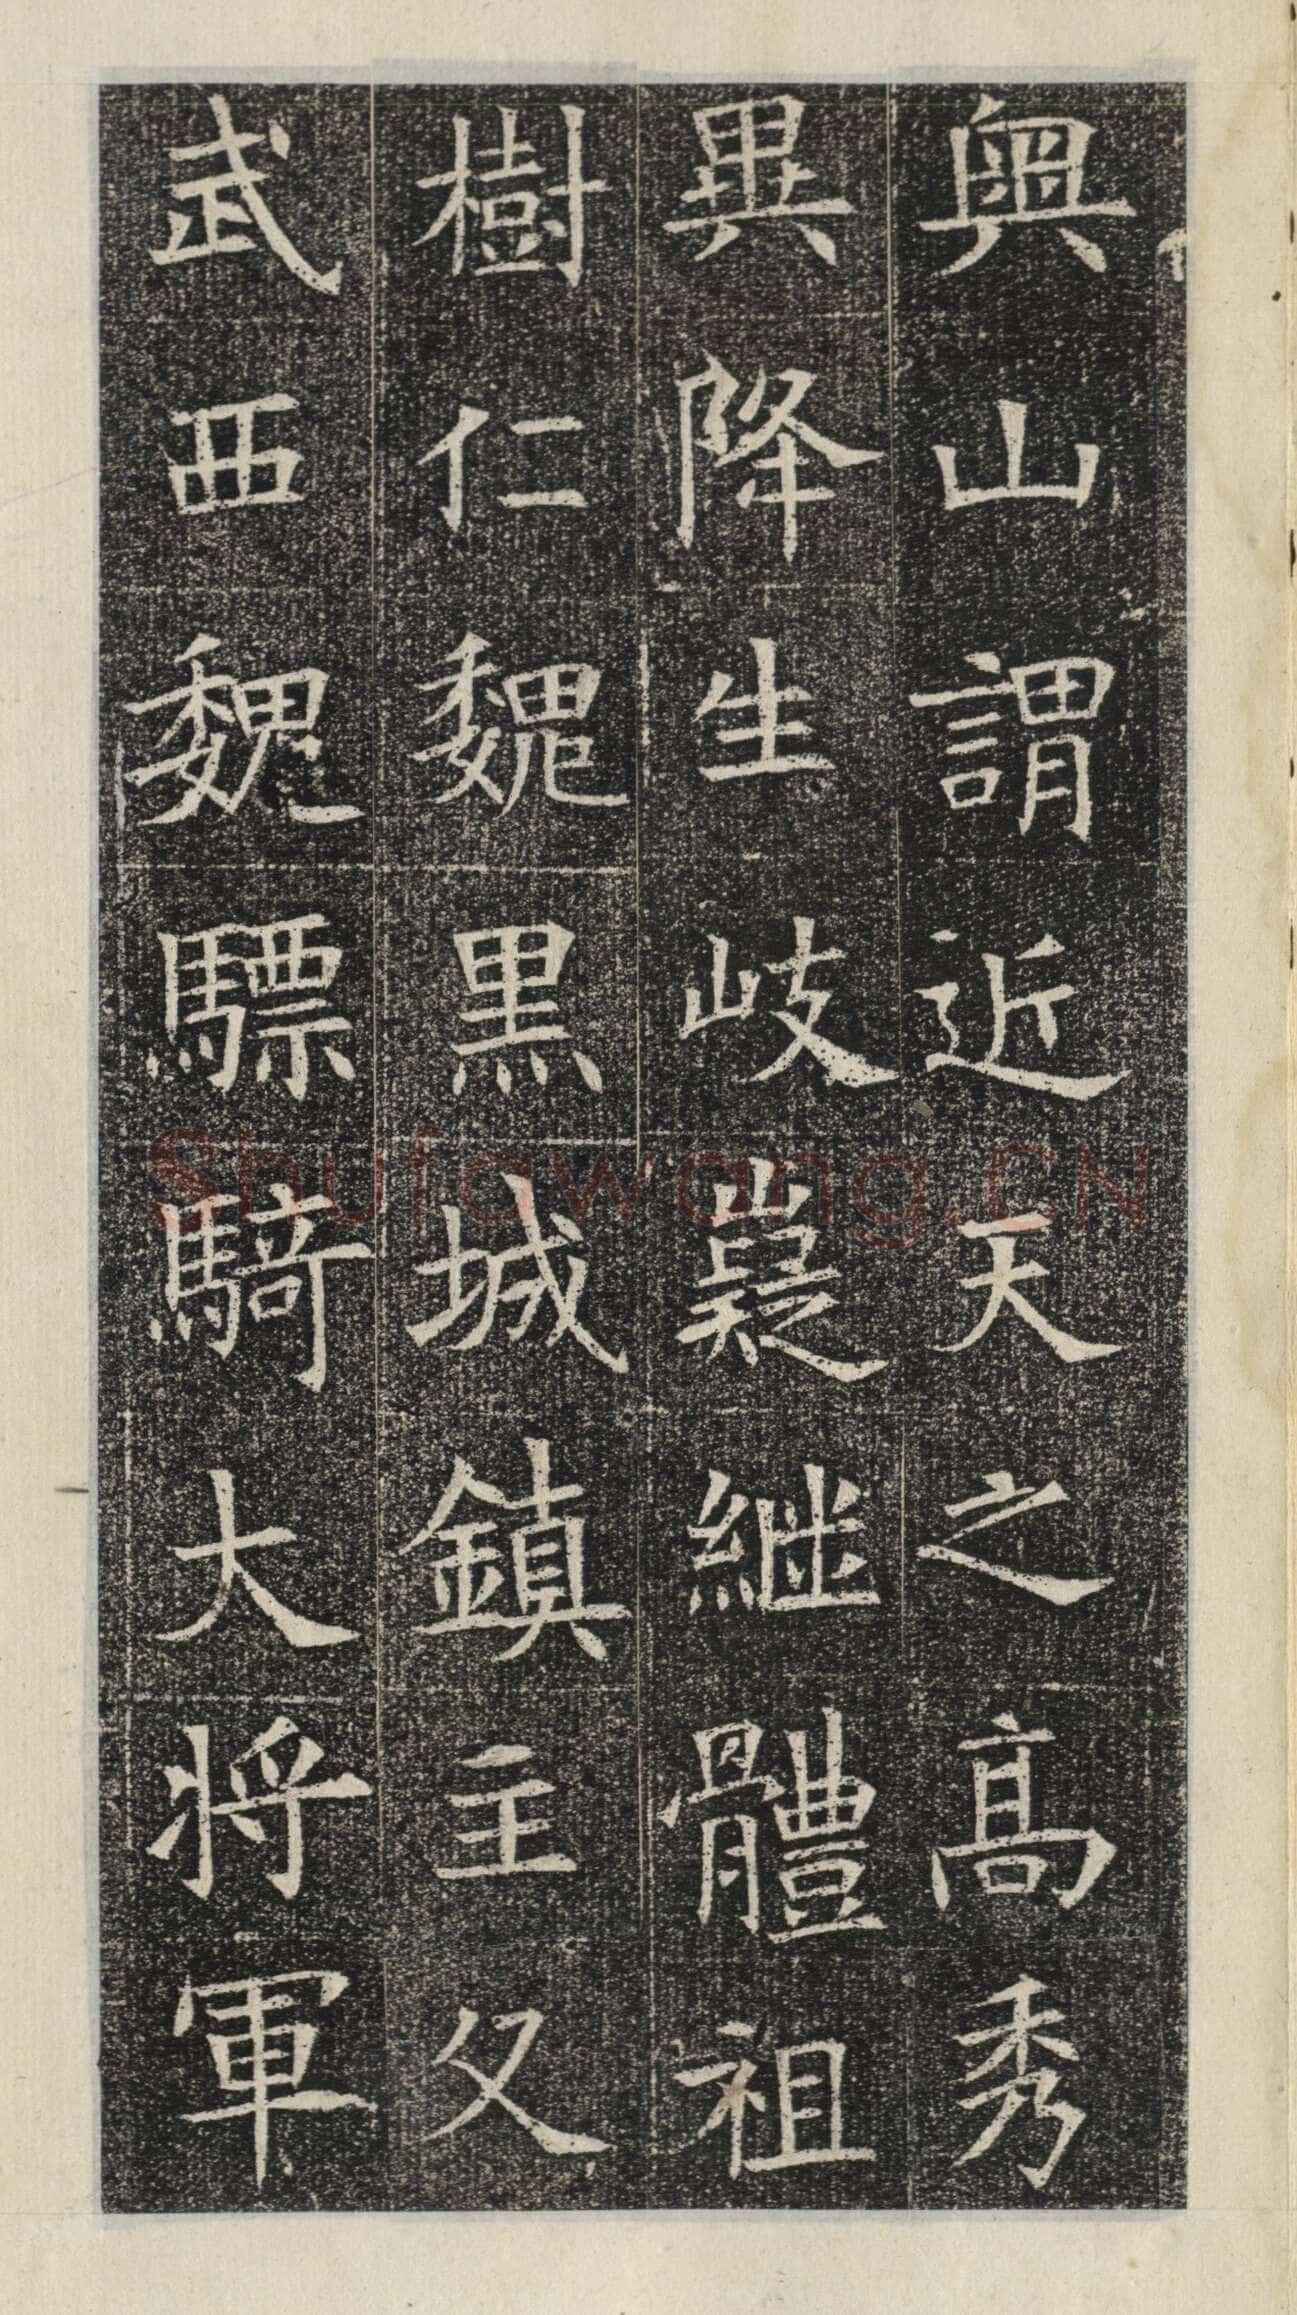 輿山謂近天之高秀
異降生岐嶷継體祖
樹仁魏黑城鎮主父
武西魏驃騎大将軍
Shufawang.CN